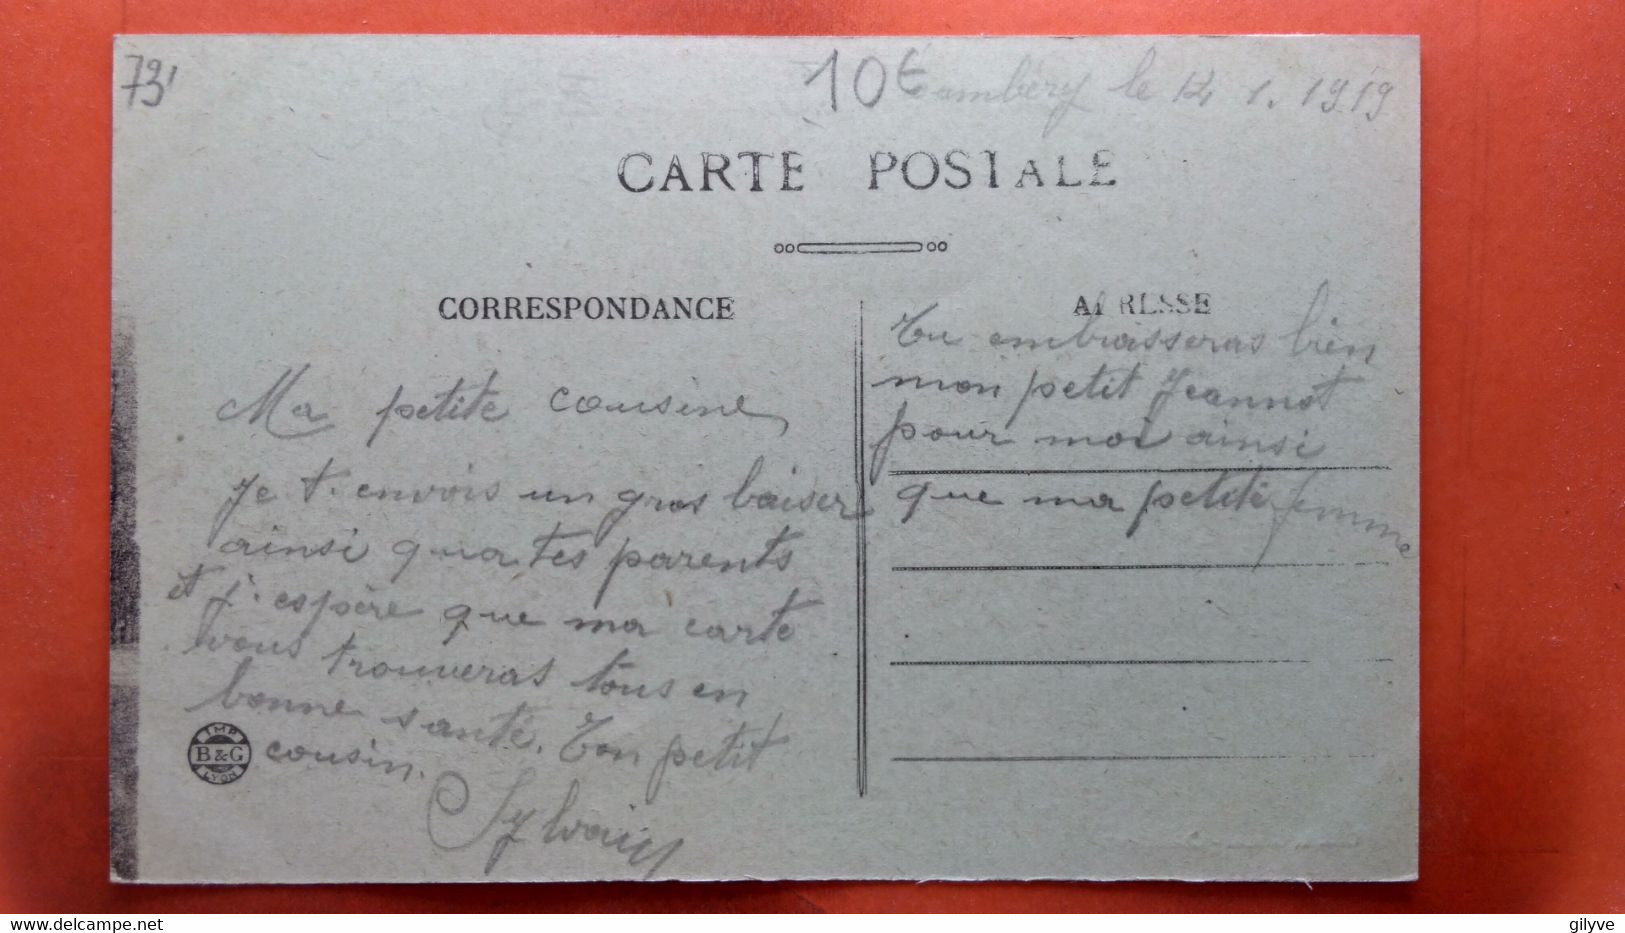 73
10€
Chambéry le 12 1. 1919
CARTE POSTALE
CORRESPONDANCE
ADRESSE
Ma petite cousine
Je t'envois un gros baiser
ainsi qu'a tes parents
et j'espère que ma carte
vous trouveras tous en
bonne santé. Ton petit
cousin.
Sylvain
Tu embrasseras bien
mon petit Jeannot
pour moi ainsi
que ma petite femme
IMP
B&G
LYON
gilyve